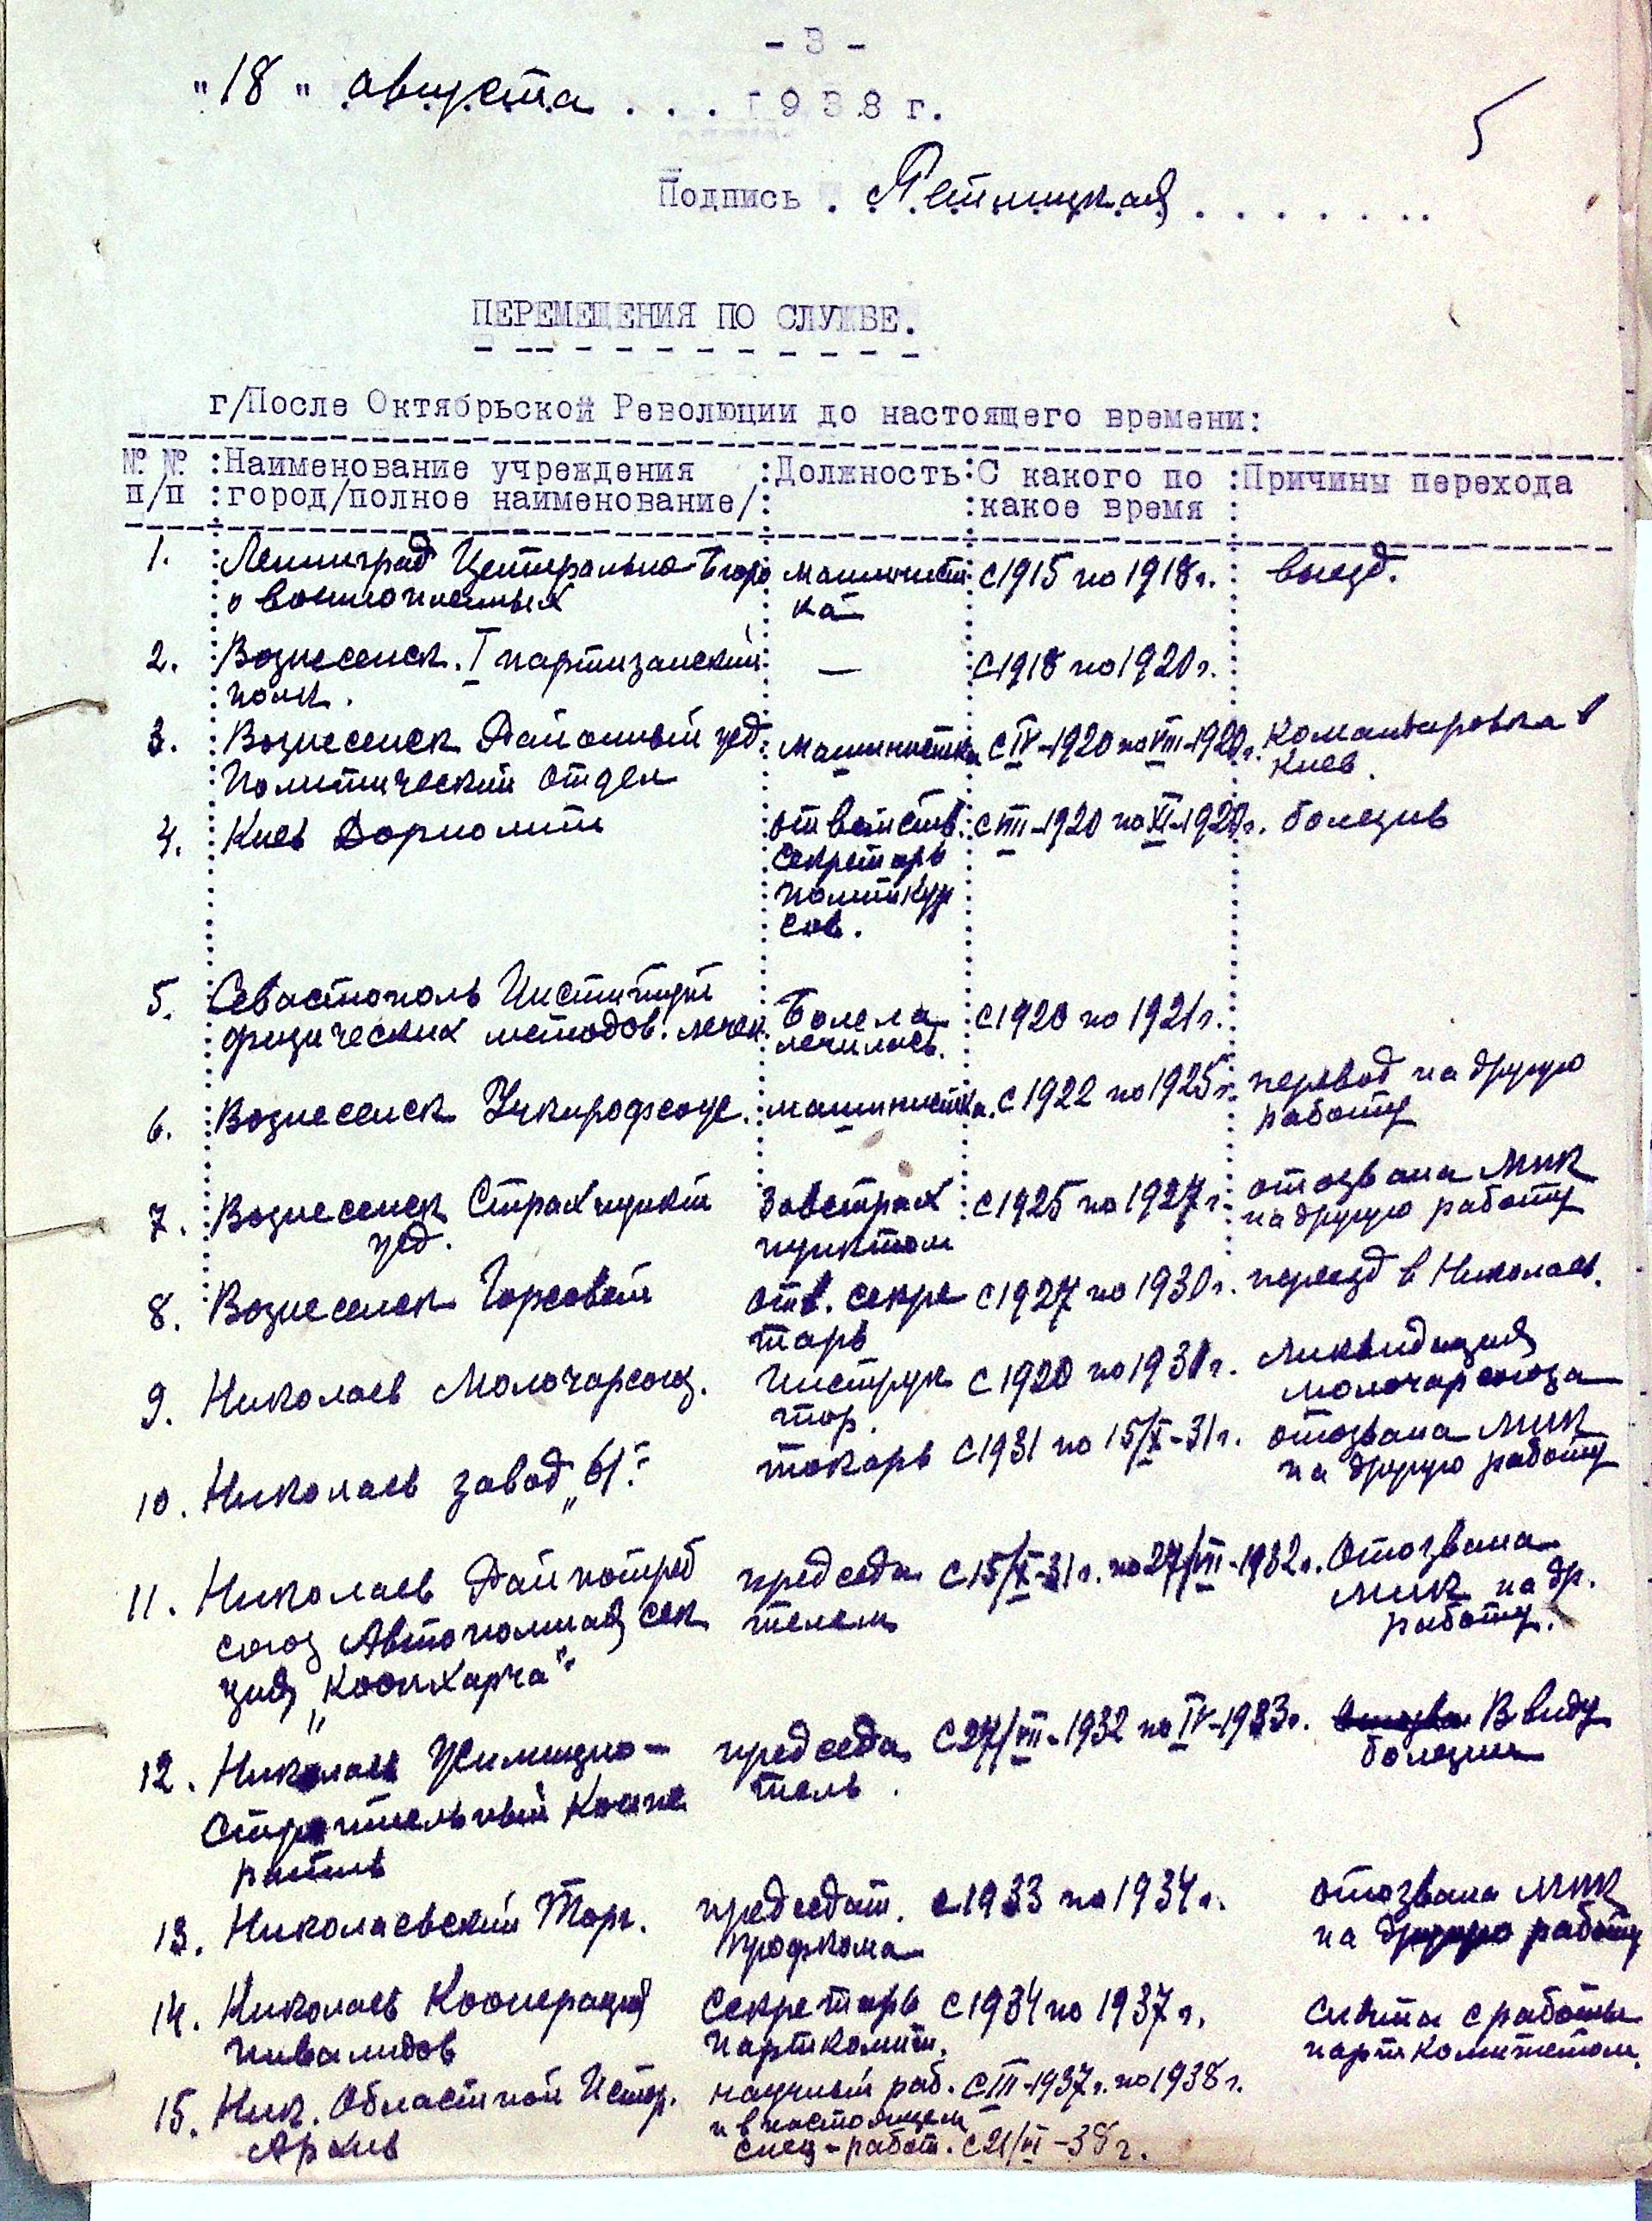 - 3 -
"18" августа . . . 1938 г.
5
Подпись . Петлицкая . . . . . . .
ПЕРЕМЕЩЕНИЯ ПО СЛУЖБЕ.
г/После Октябрьской Революции до настоящего времени:
№ № :Наименование учреждения :Должность:С какого по :Причины перехода
п/п :город/полное наименование/: :какое время :
1. Ленинград Центрально Бюро машинист с 1915 по 1918 г. выезд.
о военнопленных ка
2. Вознесенск. I партизанский — с 1918 по 1920 г.
полк.
3. Вознесенск Районный уезд. машинистка с IV-1920 по VIII-1920 г. командировка в
Политический отдел Киев.
4. Киев Дорполит ответств. с VIII-1920 по XI-1920 г. болезнь
секретарь
политкур
сов.
5. Севастополь Институт Болела с 1920 по 1921 г.
физических методов. лечен. лечилась.
6. Вознесенск Укпрофсоюз. машинистка. с 1922 по 1925 г. перевод на другую
работу
7. Вознесенск Страхпункт Завстрах с 1925 по 1927 г. отозвана МПК
уезд. пунктом на другую работу
8. Вознесенск Горсовет отв. секре с 1927 по 1930 г. переезд в Николаев.
тарь
9. Николаев Молочарсоюз. Инструк с 1920 по 1931 г. Ликвидация
тор. молочарсоюза
10. Николаев завод „61". токарь с 1931 по 15/X-31 г. отозвана МПК
на другую работу
11. Николаев Райпотреб председа с 15/X-31 г. по 27/VII-1932 г. Отозвана
союз Автономная сек телем МПК на др.
ция „Коопхарча" работу.
12. Николаев Жилищно- председа с 27/VII-1932 по IV-1933 г. В виду
Строительный Коопе тель. болезни
ратив
13. Николаевский Торг. председат. с 1933 по 1934 г. отозвана МПК
профкома на другую работу
14. Николаев Кооперация Секретарь с 1934 по 1937 г. Снята с работы
инвалидов парткомит. парткомитетом.
15. Ник. Областной Истор. научный раб. с III-1937 г. по 1938 г.
Архив и в настоящем
спец-работ. с 21/VI-38 г.